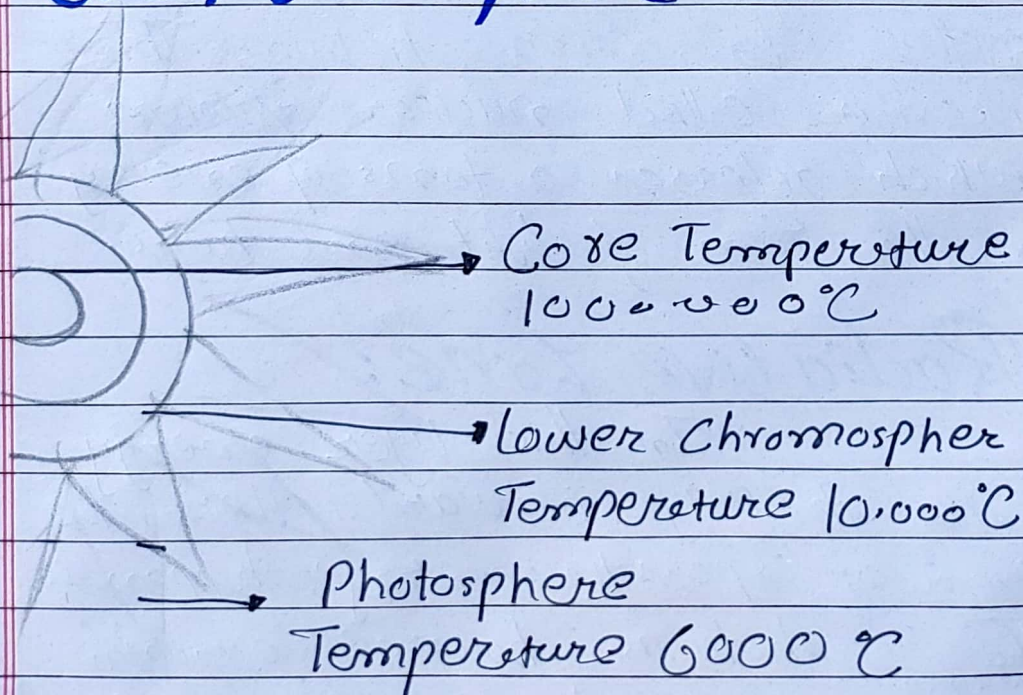 Core Temperature
1000000°C
Lower Chromospher
Tempereture 10.000°C
Photosphere
Temperature 6000 °C